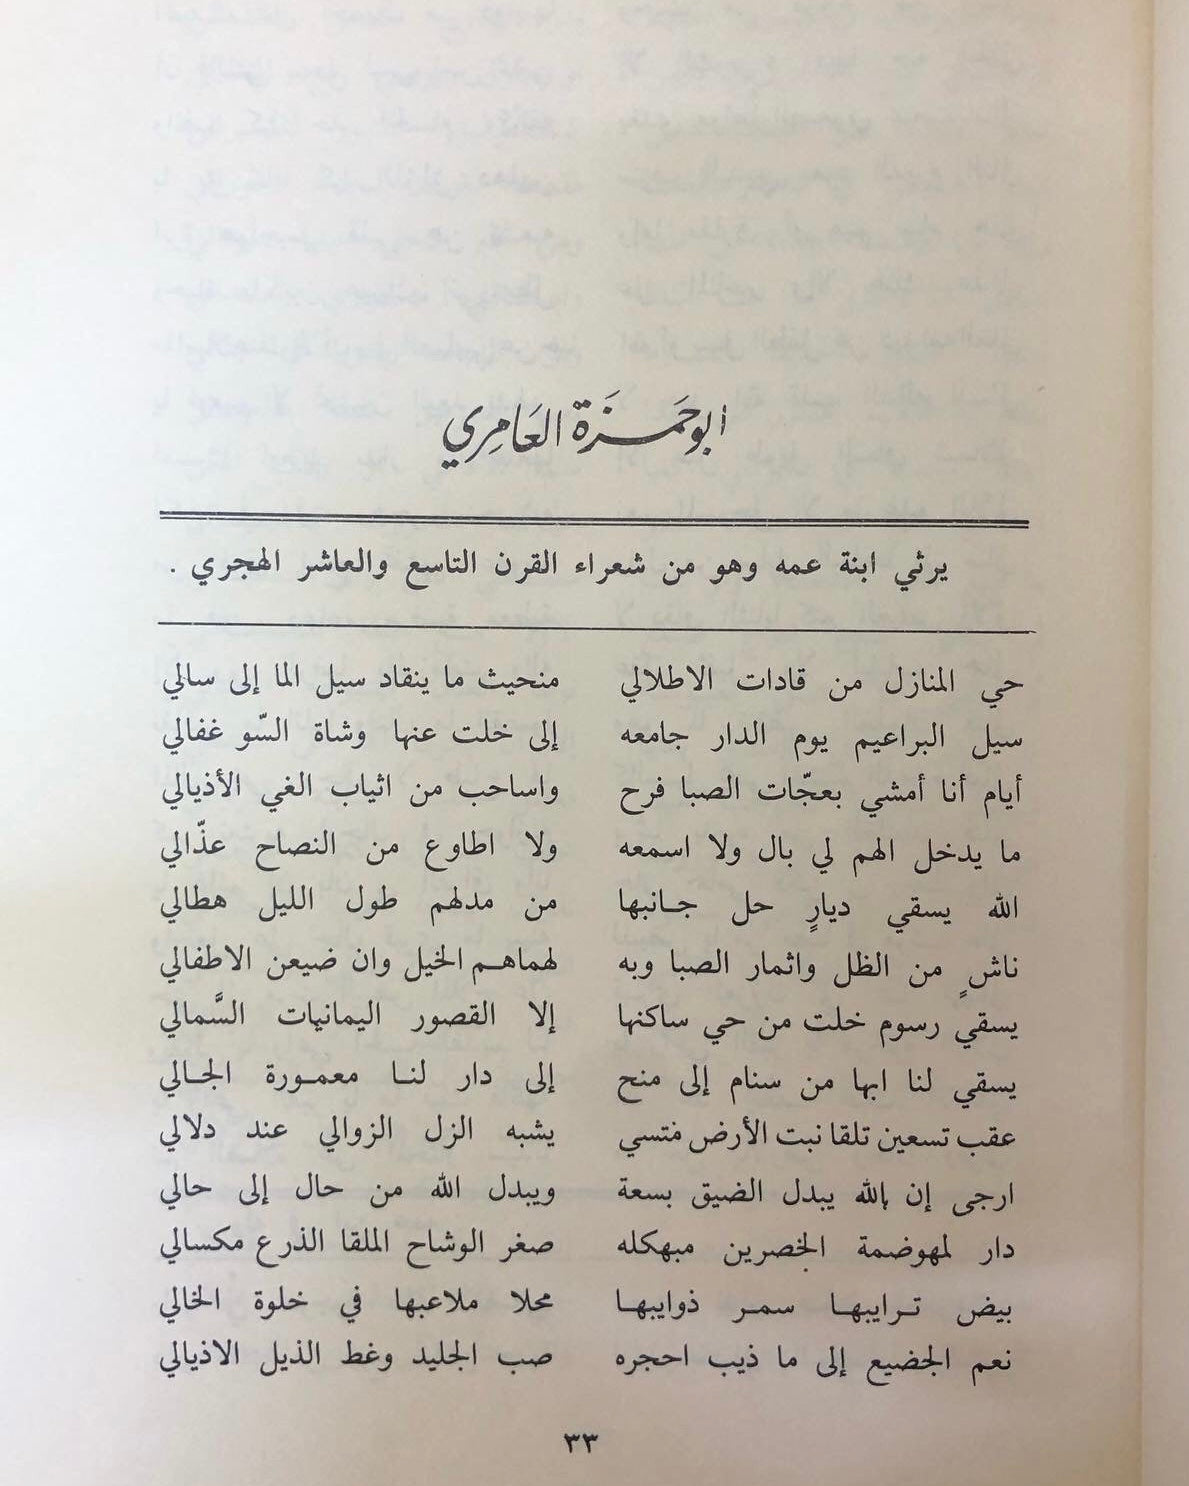 ابو حَمزَة العَامِري
يرثي ابنة عمه وهو من شعراء القرن التاسع والعاشر الهجري .
حي المنازل من قادات الاطلالي منحيث ما ينقاد سيل الما إلى سالي
سيل البراعيم يوم الدار جامعه إلى خلت عنها وشاة السّو غفالي
أيام أنا أمشي بعجّات الصبا فرح واساحب من اثياب الغي الأذيالي
ما يدخل الهم لي بال ولا اسمعه ولا اطاوع من النصاح عذّالي
الله يسقي ديارٍ حل جانبها من مدلهم طول الليل هطالي
ناشٍ من الظل واثمار الصبا وبه لهماهم الخيل وان ضيعن الاطفالي
يسقي رسوم خلت من حي ساكنها إلا القصور اليمانيات السَّمالي
يسقي لنا ابها من سنام إلى منح إلى دار لنا معمورة الجالي
عقب تسعين تلقا نبت الأرض مُتسي يشبه الزل الزوالي عند دلالي
ارجى إن بالله يبدل الضيق بسعة ويبدل الله من حال إلى حالي
دار لمهوضمة الخصرين مبهكله صغر الوشاح الملقا الذرع مكسالي
بيض ترايبها سمر ذوايبها محلا ملاعبها في خلوة الخالي
نعم الجضيع إلى ما ذيب احجره صب الجليد وغط الذيل الاذيالي
٣٣